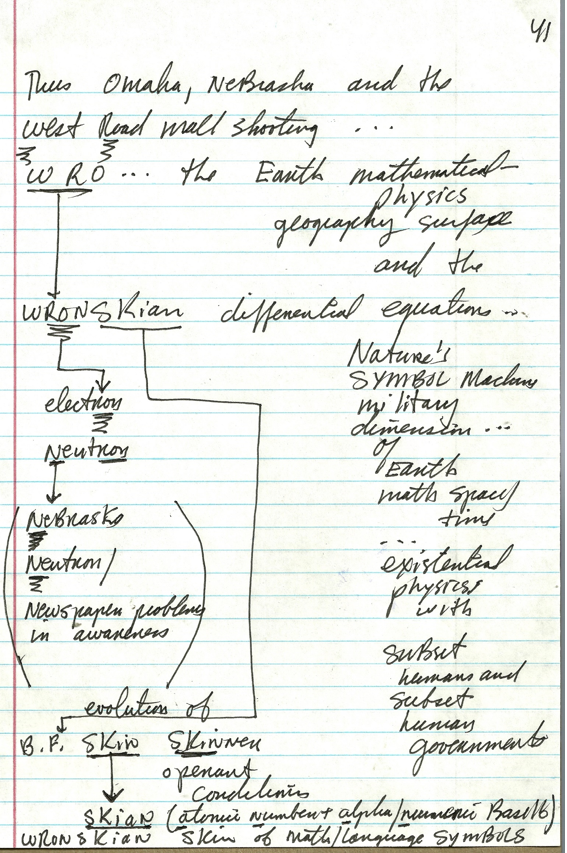 41
Thus Omaha, NeBraska and the
West Road mall shooting ...
W R O ... the Earth mathematical-
physics
geography surface
and the
WRONSKian differential equations ...
Nature's
SYMBOL Machine
military
dimension ...
of
Earth
math space/
time
....
existential
physics
with
subset
humans and
subset
human
governments
electron
Neutron
NeBraska
Neutron/
Newspaper problems
in awareness
evolution of
B.F. SKin SKinner
openant
Conditions
SKiAN (atomic number + alpha/numeric Base 16)
WRONSKian SKin of math/language SYMBOLS